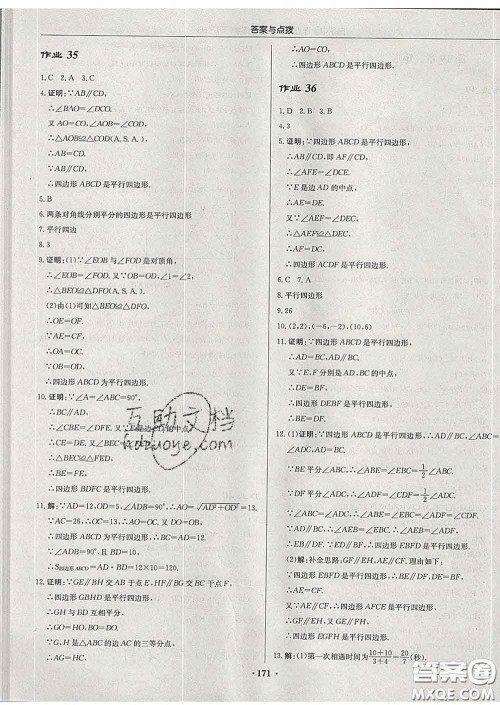 答案与点拨
作业 35
1. C 2. A 3. C
4. 证明:∵AB∥CD,
∴∠BAO=∠DCO.
又∵AO=CO,∠AOB=∠COD,
∴△AOB≌△COD(A.S.A.),
∴AB=CD.
又∵AB∥CD,
∴四边形 ABCD 是平行四边形.
5. B
6. 两条对角线分别平分的四边形是平行四边形
7. 平行四边
8. 3
9. 证明:(1)∵∠EOB 与∠FOD 是对顶角,
∴∠EOB=∠FOD. 又∵OB=OD,∠1=∠2,
∴△BEO≌△DFO(A.S.A.).
(2)由(1)可知△BEO≌△DFO,
∴OE=OF.
又∵AE=CF,
∴OA=OC.
又∵OB=OD,
∴四边形 ABCD 为平行四边形.
10. 证明:∵∠A=∠ABC=90°,
∴BC∥AD,
∴∠CBE=∠DFE. 又∵E是边CD的中点,
∴CE=DE. 又∵∠BEC=∠FED,
∴△BEC≌△FED,
∴BE=FE,
∴四边形 BDFC 是平行四边形.
11. 解:∵AD=12,OD=5,∠ADB=90°,∴AO=√AD²+OD²=13.
∵AC=26,∴OC=13,∴AO=OC. 又∵DO=OB,
∴四边形 ABCD 为平行四边形.
∵∠ADB=90°,且 BD=10,
∴S四边形ABCD=AD·BD=12×10=120.
12. 证明:∵GE∥BH 交 AB 于点 E,GF∥BH 交 BC 于点 F,
∴四边形 GBHD 是平行四边形,
∴GH 与 BD 互相平分.
又∵G,H 是边 AC 的三等分点,
∴AG=HC.
∴AO=CO,
∴四边形 ABCD 是平行四边形.
作业 36
1. D 2. B 3. B
4. 3
5. 证明:∵四边形 ABCD 是平行四边形,
∴AB∥CD,即 AF∥CD,
∴∠AFE=∠DCE.
∵E是边 AD 的中点,
∴AE=DE.
又∵∠AEF=∠DEC,
∴△AEF≌△DEC,
∴AF=DC,
∴四边形 ACDF 是平行四边形.
6. C 7. A
8. 平行四边形
9. 26
10. (2,2),(-6,-2),(10,6)
11. 证明:∵四边形 ABCD 是平行四边形,
∴AD=BC,AD∥BC.
又∵E,F 分别是边 AD,BC 的中点,
∴DE=BF,
∴四边形 DEBF 是平行四边形,
∴BE=DF.
12. (1)证明:∵四边形 ABCD 是平行四边形,
∴AD∥BC,∠ABC=∠ADC,AD=BC.
∵BE 平分∠ABC,∴∠ABE=∠EBC=1/2∠ABC.
∵DF 平分∠ADC,∴∠ADF=∠CDF=1/2∠ADC.
∵∠ABC=∠ADC,
∴∠ABE=∠EBC=∠ADF=∠CDF.
∵AD∥BC,∴∠AEB=∠EBC,
∴∠AEB=∠ADF,∴EB∥DF.
∵ED∥BF,∴四边形 EBFD 是平行四边形.
(2)补全思路:GF∥EH,AE∥CF.
理由:∵四边形 EBFD 是平行四边形,
∴BE∥DF,DE=BF,∴AE=CF.
又∵AE∥CF,∴四边形 AFCE 是平行四边形,
∴GF∥EH,
∴四边形 EGFH 是平行四边形.
13. 解:(1)第一次相遇时间为(10+10)/(3+4)=20/7(秒).
171
互助文档
hdzuoye.com
答案圈
MXQE.COM